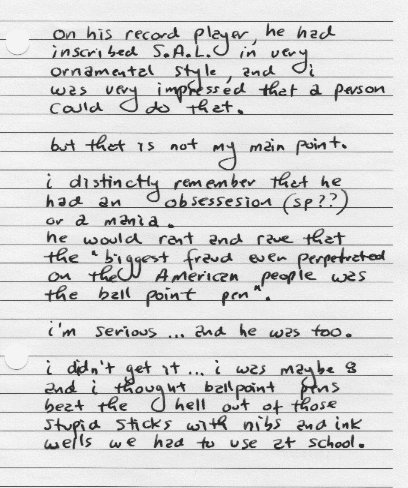 on his record player, he had
inscribed S.A.L. in very
ornamental style, and i
was very impressed that a person
could do that.
but that is not my main point.
i distinctly remember that he
had an obssession (sp??)
or a mania.
he would rant and rave that
the "biggest fraud even perpetrated
on the American people was
the ball point pen".
i'm serious... and he was too.
i didn't get it... i was maybe 8
and i thought ballpoint pens
beat the hell out of those
stupid sticks with nibs and ink
wells we had to use at school.